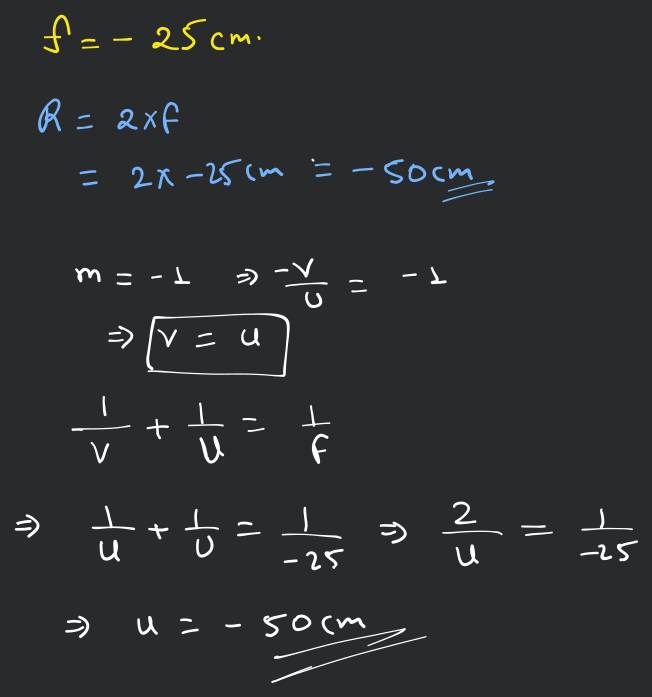 f = - 25 cm.
R = 2xf
= 2x -25 cm = - 50 cm
m = -1 ⇒ -v/u = -1
⇒ v = u
1/v + 1/u = 1/f
⇒ 1/u + 1/u = 1/-25 ⇒ 2/u = 1/-25
⇒ u = - 50 cm